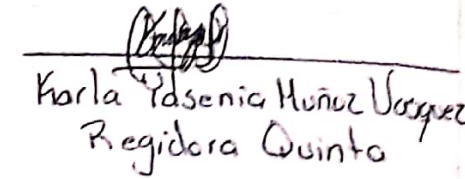 Karla Ydsenia Muñoz Vasquez
Regidora Quinta